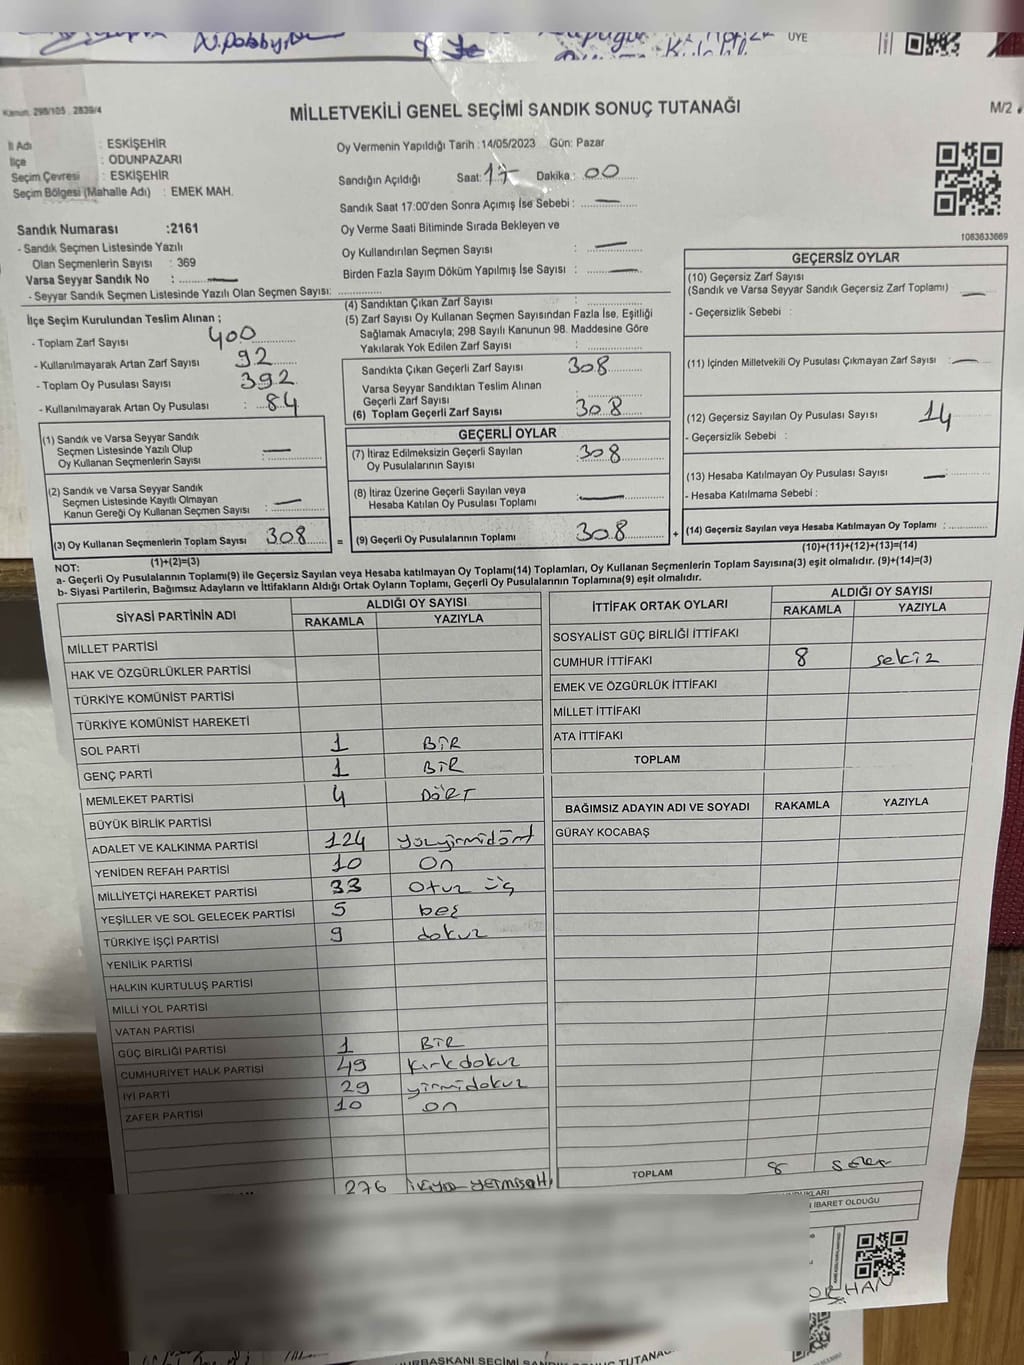 N.Dabby
ÜYE
Kanun: 298/105 , 2839/4
MİLLETVEKİLİ GENEL SEÇİMİ SANDIK SONUÇ TUTANAĞI
M/2
İl Adı : ESKİŞEHİR
İlçe : ODUNPAZARI
Seçim Çevresi : ESKİŞEHİR
Seçim Bölgesi (Mahalle Adı) : EMEK MAH.
Oy Vermenin Yapıldığı Tarih : 14/05/2023 Gün: Pazar
Sandığın Açıldığı Saat: 17 Dakika : 00
Sandık Saat 17:00'den Sonra Açımış İse Sebebi : —
Oy Verme Saati Bitiminde Sırada Bekleyen ve
Oy Kullandırılan Seçmen Sayısı : —
Birden Fazla Sayım Döküm Yapılmış İse Sayısı : —
Sandık Numarası :2161
- Sandık Seçmen Listesinde Yazılı
Olan Seçmenlerin Sayısı : 369
Varsa Seyyar Sandık No : —
- Seyyar Sandık Seçmen Listesinde Yazılı Olan Seçmen Sayısı:
1083633669
İlçe Seçim Kurulundan Teslim Alınan ;
- Toplam Zarf Sayısı : 400
- Kullanılmayarak Artan Zarf Sayısı : 92
- Toplam Oy Pusulası Sayısı : 392
- Kullanılmayarak Artan Oy Pusulası : 84
(1) Sandık ve Varsa Seyyar Sandık
Seçmen Listesinde Yazılı Olup
Oy Kullanan Seçmenlerin Sayısı : —
(2) Sandık ve Varsa Seyyar Sandık
Seçmen Listesinde Kayıtlı Olmayan
Kanun Gereği Oy Kullanan Seçmen Sayısı : —
(3) Oy Kullanan Seçmenlerin Toplam Sayısı 308
(1)+(2)=(3)
(4) Sandıktan Çıkan Zarf Sayısı :
(5) Zarf Sayısı Oy Kullanan Seçmen Sayısından Fazla İse, Eşitliği
Sağlamak Amacıyla; 298 Sayılı Kanunun 98. Maddesine Göre
Yakılarak Yok Edilen Zarf Sayısı :
Sandıkta Çıkan Geçerli Zarf Sayısı 308
Varsa Seyyar Sandıktan Teslim Alınan
Geçerli Zarf Sayısı :
(6) Toplam Geçerli Zarf Sayısı 308
GEÇERLİ OYLAR
(7) İtiraz Edilmeksizin Geçerli Sayılan
Oy Pusulalarının Sayısı : 308
(8) İtiraz Üzerine Geçerli Sayılan veya
Hesaba Katılan Oy Pusulası Toplamı : —
= (9) Geçerli Oy Pusulalarının Toplamı 308 +
GEÇERSİZ OYLAR
(10) Geçersiz Zarf Sayısı
(Sandık ve Varsa Seyyar Sandık Geçersiz Zarf Toplamı) —
- Geçersizlik Sebebi :
(11) İçinden Milletvekili Oy Pusulası Çıkmayan Zarf Sayısı : —
(12) Geçersiz Sayılan Oy Pusulası Sayısı : 14
- Geçersizlik Sebebi :
(13) Hesaba Katılmayan Oy Pusulası Sayısı : —
- Hesaba Katılmama Sebebi :
(14) Geçersiz Sayılan veya Hesaba Katılmayan Oy Toplamı :
(10)+(11)+(12)+(13)=(14)
NOT:
a- Geçerli Oy Pusulalarının Toplamı(9) ile Geçersiz Sayılan veya Hesaba katılmayan Oy Toplamı(14) Toplamları, Oy Kullanan Seçmenlerin Toplam Sayısına(3) eşit olmalıdır. (9)+(14)=(3)
b- Siyasi Partilerin, Bağımsız Adayların ve İttifakların Aldığı Ortak Oyların Toplamı, Geçerli Oy Pusulalarının Toplamına(9) eşit olmalıdır.
SİYASİ PARTİNİN ADI ALDIĞI OY SAYISI
RAKAMLA YAZIYLA
MİLLET PARTİSİ
HAK VE ÖZGÜRLÜKLER PARTİSİ
TÜRKİYE KOMÜNİST PARTİSİ
TÜRKİYE KOMÜNİST HAREKETİ
SOL PARTİ 1 BİR
GENÇ PARTİ 1 BİR
MEMLEKET PARTİSİ 4 DÖRT
BÜYÜK BİRLİK PARTİSİ
ADALET VE KALKINMA PARTİSİ 124 yüzyirmidört
YENİDEN REFAH PARTİSİ 10 On
MİLLİYETÇİ HAREKET PARTİSİ 33 Otuz üç
YEŞİLLER VE SOL GELECEK PARTİSİ 5 beş
TÜRKİYE İŞÇİ PARTİSİ 9 dokuz
YENİLİK PARTİSİ
HALKIN KURTULUŞ PARTİSİ
MİLLİ YOL PARTİSİ
VATAN PARTİSİ
GÜÇ BİRLİĞİ PARTİSİ 1 BİR
CUMHURİYET HALK PARTİSİ 49 kırkdokuz
İYİ PARTİ 29 yirmidokuz
ZAFER PARTİSİ 10 on
276
İTTİFAK ORTAK OYLARI ALDIĞI OY SAYISI
RAKAMLA YAZIYLA
SOSYALİST GÜÇ BİRLİĞİ İTTİFAKI
CUMHUR İTTİFAKI 8 sekiz
EMEK VE ÖZGÜRLÜK İTTİFAKI
MİLLET İTTİFAKI
ATA İTTİFAKI
TOPLAM
BAĞIMSIZ ADAYIN ADI VE SOYADI RAKAMLA YAZIYLA
GÜRAY KOCABAŞ
TOPLAM 8 sekiz
İBARET OLDUĞU
ORHAN
URBAŞKANI SEÇİMİ SANDIK SONUÇ TUTANAĞ